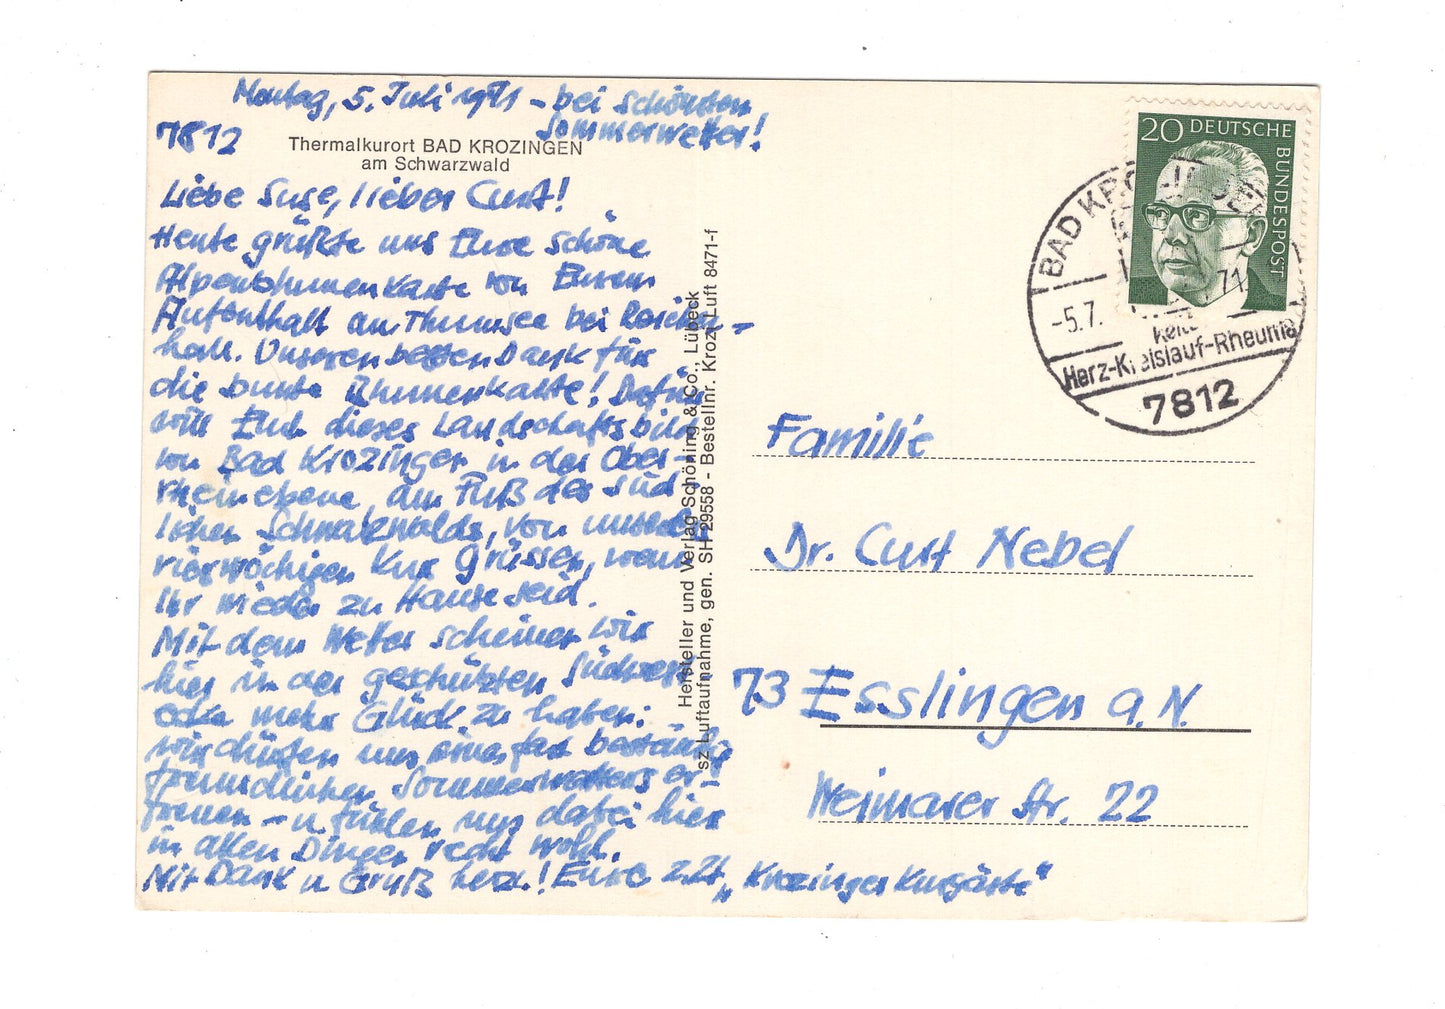 Montag, 5. Juli 1971 - bei schönstem
Sommerwetter!
7812
Thermalkurort BAD KROZINGEN
am Schwarzwald
Liebe Suse, lieber Curt!
Heute grüßte uns Eure schöne
Alpenblumenkarte von Eurem
Aufenthalt am Thumsee bei Reichen-
hall. Unseren besten Dank für
die bunte Blumenkarte! Dafür
soll Euch dieses Landschaftsbild
von Bad Krozingen in der Ober-
rheinebene am Fuß des süd-
lichen Schwarzwalds, von unserer
vierwöchigen Kur grüssen, wenn
Ihr wieder zu Hause seid.
Mit dem Wetter scheinen wir
hier in der geschützten Südwest-
ecke mehr Glück zu haben:
wir dürfen uns eines fast beständig
freundlichen Sommerwetters er-
freuen - u. fühlen uns dabei hier
in allen Dingen recht wohl.
Mit Dank u. Gruß herzl.! Eure z.Zt. „Krozinger Kurgäste“
Hersteller und Verlag Schöning & Co., Lübeck
sz Luftaufnahme, gen. SH 29558 - Bestellnr. Kroz. Luft 8471-f
20 DEUTSCHE
BUNDESPOST
BAD KROZINGEN
-5.7.71
Herz-Kreislauf-Rheuma
7812
Familie
Dr. Curt Nebel
73 Esslingen a. N.
Weimarer Str. 22